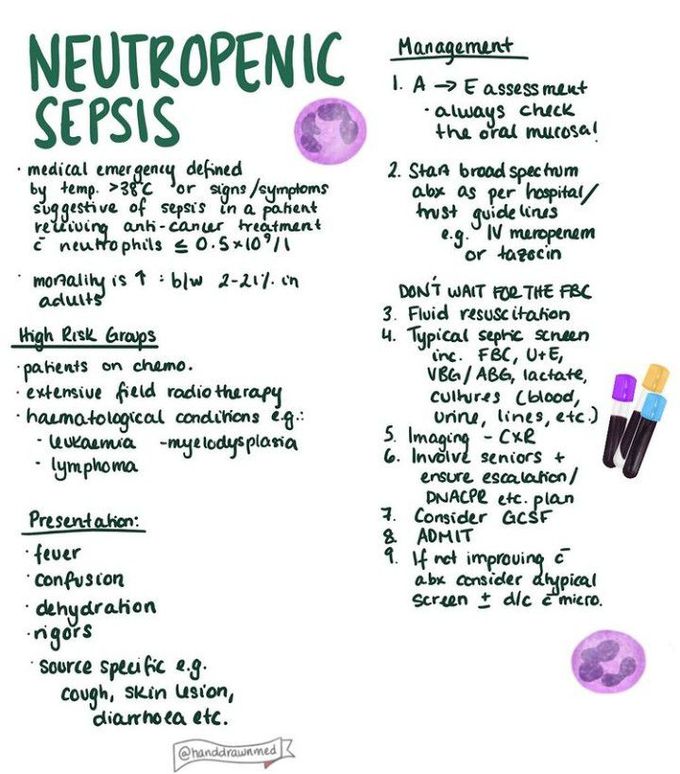 NEUTROPENIC
SEPSIS
· medical emergency defined
by temp. >38°C or signs/symptoms
suggestive of sepsis in a patient
receiving anti-cancer treatment
c̄ neutrophils ≤ 0.5×10⁹/l
· mortality is ↑ : b/w 2-21% in
adults
High Risk Groups
· patients on chemo.
· extensive field radiotherapy
· haematological conditions e.g.:
· leukaemia -myelodysplasia
· lymphoma
Presentation:
· fever
· confusion
· dehydration
· rigors
· source specific e.g.
cough, skin lesion,
diarrhoea etc.
@handdrawnmed
Management
1. A → E assessment
· always check
the oral mucosa!
2. Start broad spectrum
abx as per hospital/
trust guidelines
e.g. IV meropenem
or tazocin
DON'T WAIT FOR THE FBC
3. Fluid resuscitation
4. Typical septic screen
inc. FBC, U+E,
VBG/ABG, lactate,
cultures (blood,
urine, lines, etc.)
5. Imaging - CXR
6. Involve seniors +
ensure escalation/
DNACPR etc. plan
7. Consider GCSF
8. ADMIT
9. If not improving c̄
abx consider atypical
screen ± d/c c̄ micro.